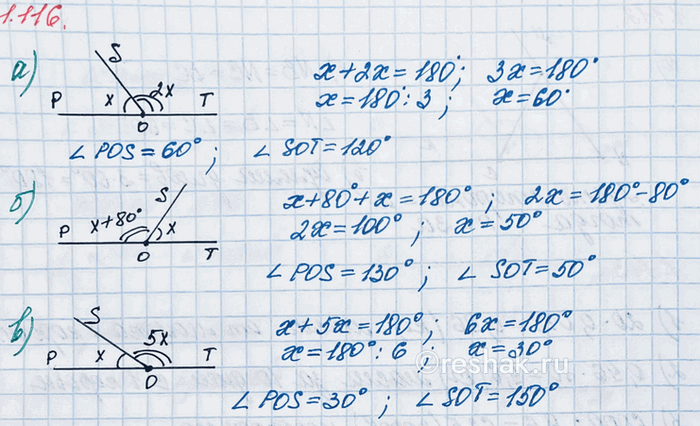 1.116.
а)
S
x 2x
P T
O
x+2x=180°; 3x=180°
x=180°:3; x=60°
∠POS=60°; ∠SOT=120°
б)
S
x+80° x
P T
O
x+80°+x=180°; 2x=180°-80°
2x=100°; x=50°
∠POS=130°; ∠SOT=50°
в)
S
x 5x
P T
O
x+5x=180°; 6x=180°
x=180°:6; x=30°
∠POS=30°; ∠SOT=150°
©reshak.ru